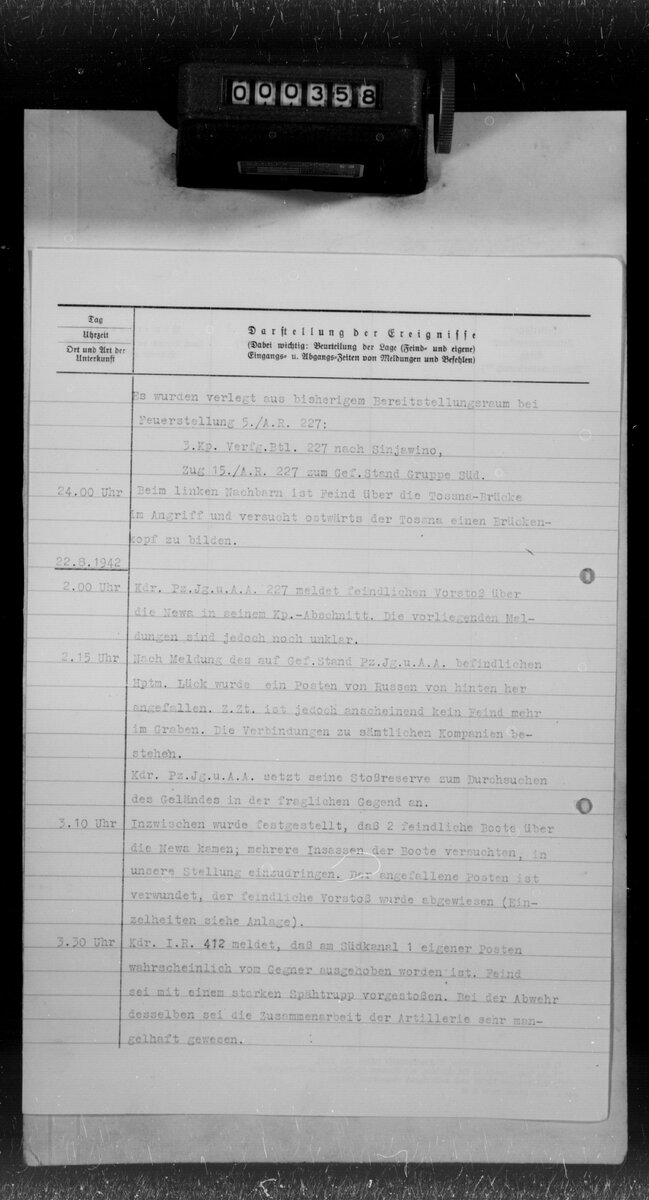 000358
Tag
Uhrzeit
Ort und Art der
Unterkunft
Darstellung der Ereignisse
(Dabei wichtig: Beurteilung der Lage (Feind- und eigene)
Eingangs- u. Abgangs-Zeiten von Meldungen und Befehlen)
Es wurden verlegt aus bisherigem Bereitstellungsraum bei
Feuerstellung 5./A.R. 227:
3.Kp. Verfg.Btl. 227 nach Sinjawino,
Zug 15./A.R. 227 zum Gef.Stand Gruppe Süd.
24.00 Uhr Beim linken Nachbarn ist Feind über die Tossna-Brücke
im Angriff und versucht ostwärts der Tossna einen Brücken-
kopf zu bilden.
22.8.1942
2.00 Uhr Kdr. Pz.Jg.u.A.A. 227 meldet feindlichen Vorstoß über
die Newa in seinem Kp.-Abschnitt. Die vorliegenden Mel-
dungen sind jedoch noch unklar.
2.15 Uhr Nach Meldung des auf Gef.Stand Pz.Jg.u.A.A. befindlichen
Hptm. Lück wurde ein Posten von Russen von hinten her
angefallen. Z.Zt. ist jedoch anscheinend kein Feind mehr
im Graben. Die Verbindungen zu sämtlichen Kompanien be-
stehen.
Kdr. Pz.Jg.u.A.A. setzt seine Stoßreserve zum Durchsuchen
des Geländes in der fraglichen Gegend an.
3.10 Uhr Inzwischen wurde festgestellt, daß 2 feindliche Boote über
die Newa kamen; mehrere Insassen der Boote versuchten, in
unsere Stellung einzudringen. Der angefallene Posten ist
verwundet, der feindliche Vorstoß wurde abgewiesen (Ein-
zelheiten siehe Anlage).
3.30 Uhr Kdr. I.R. 412 meldet, daß am Südkanal 1 eigener Posten
wahrscheinlich vom Gegner ausgehoben worden ist. Feind
sei mit einem starken Spähtrupp vorgestoßen. Bei der Abwehr
desselben sei die Zusammenarbeit der Artillerie sehr man-
gelhaft gewesen.